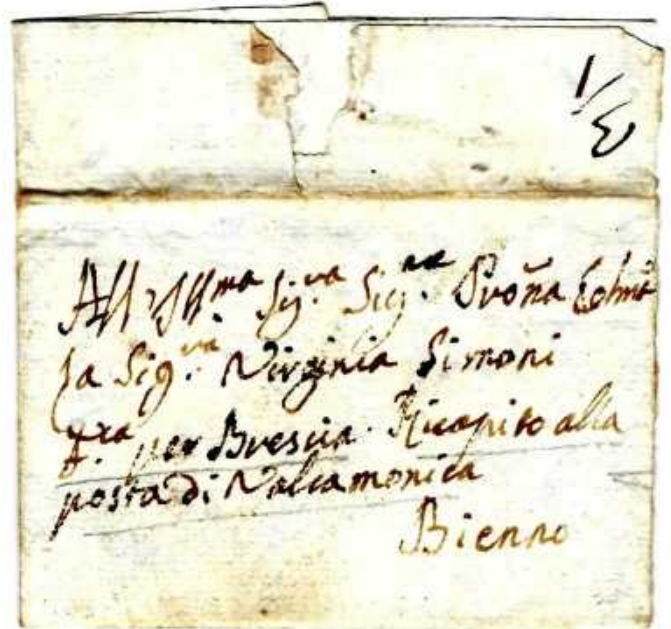 1/3
All'Ill.ma Sig.ra Sig.ra Proña Colma
la Sig.ra Virginia Simoni
per Brescia. Ricapito alla
posta di Valcamonica
Bienno